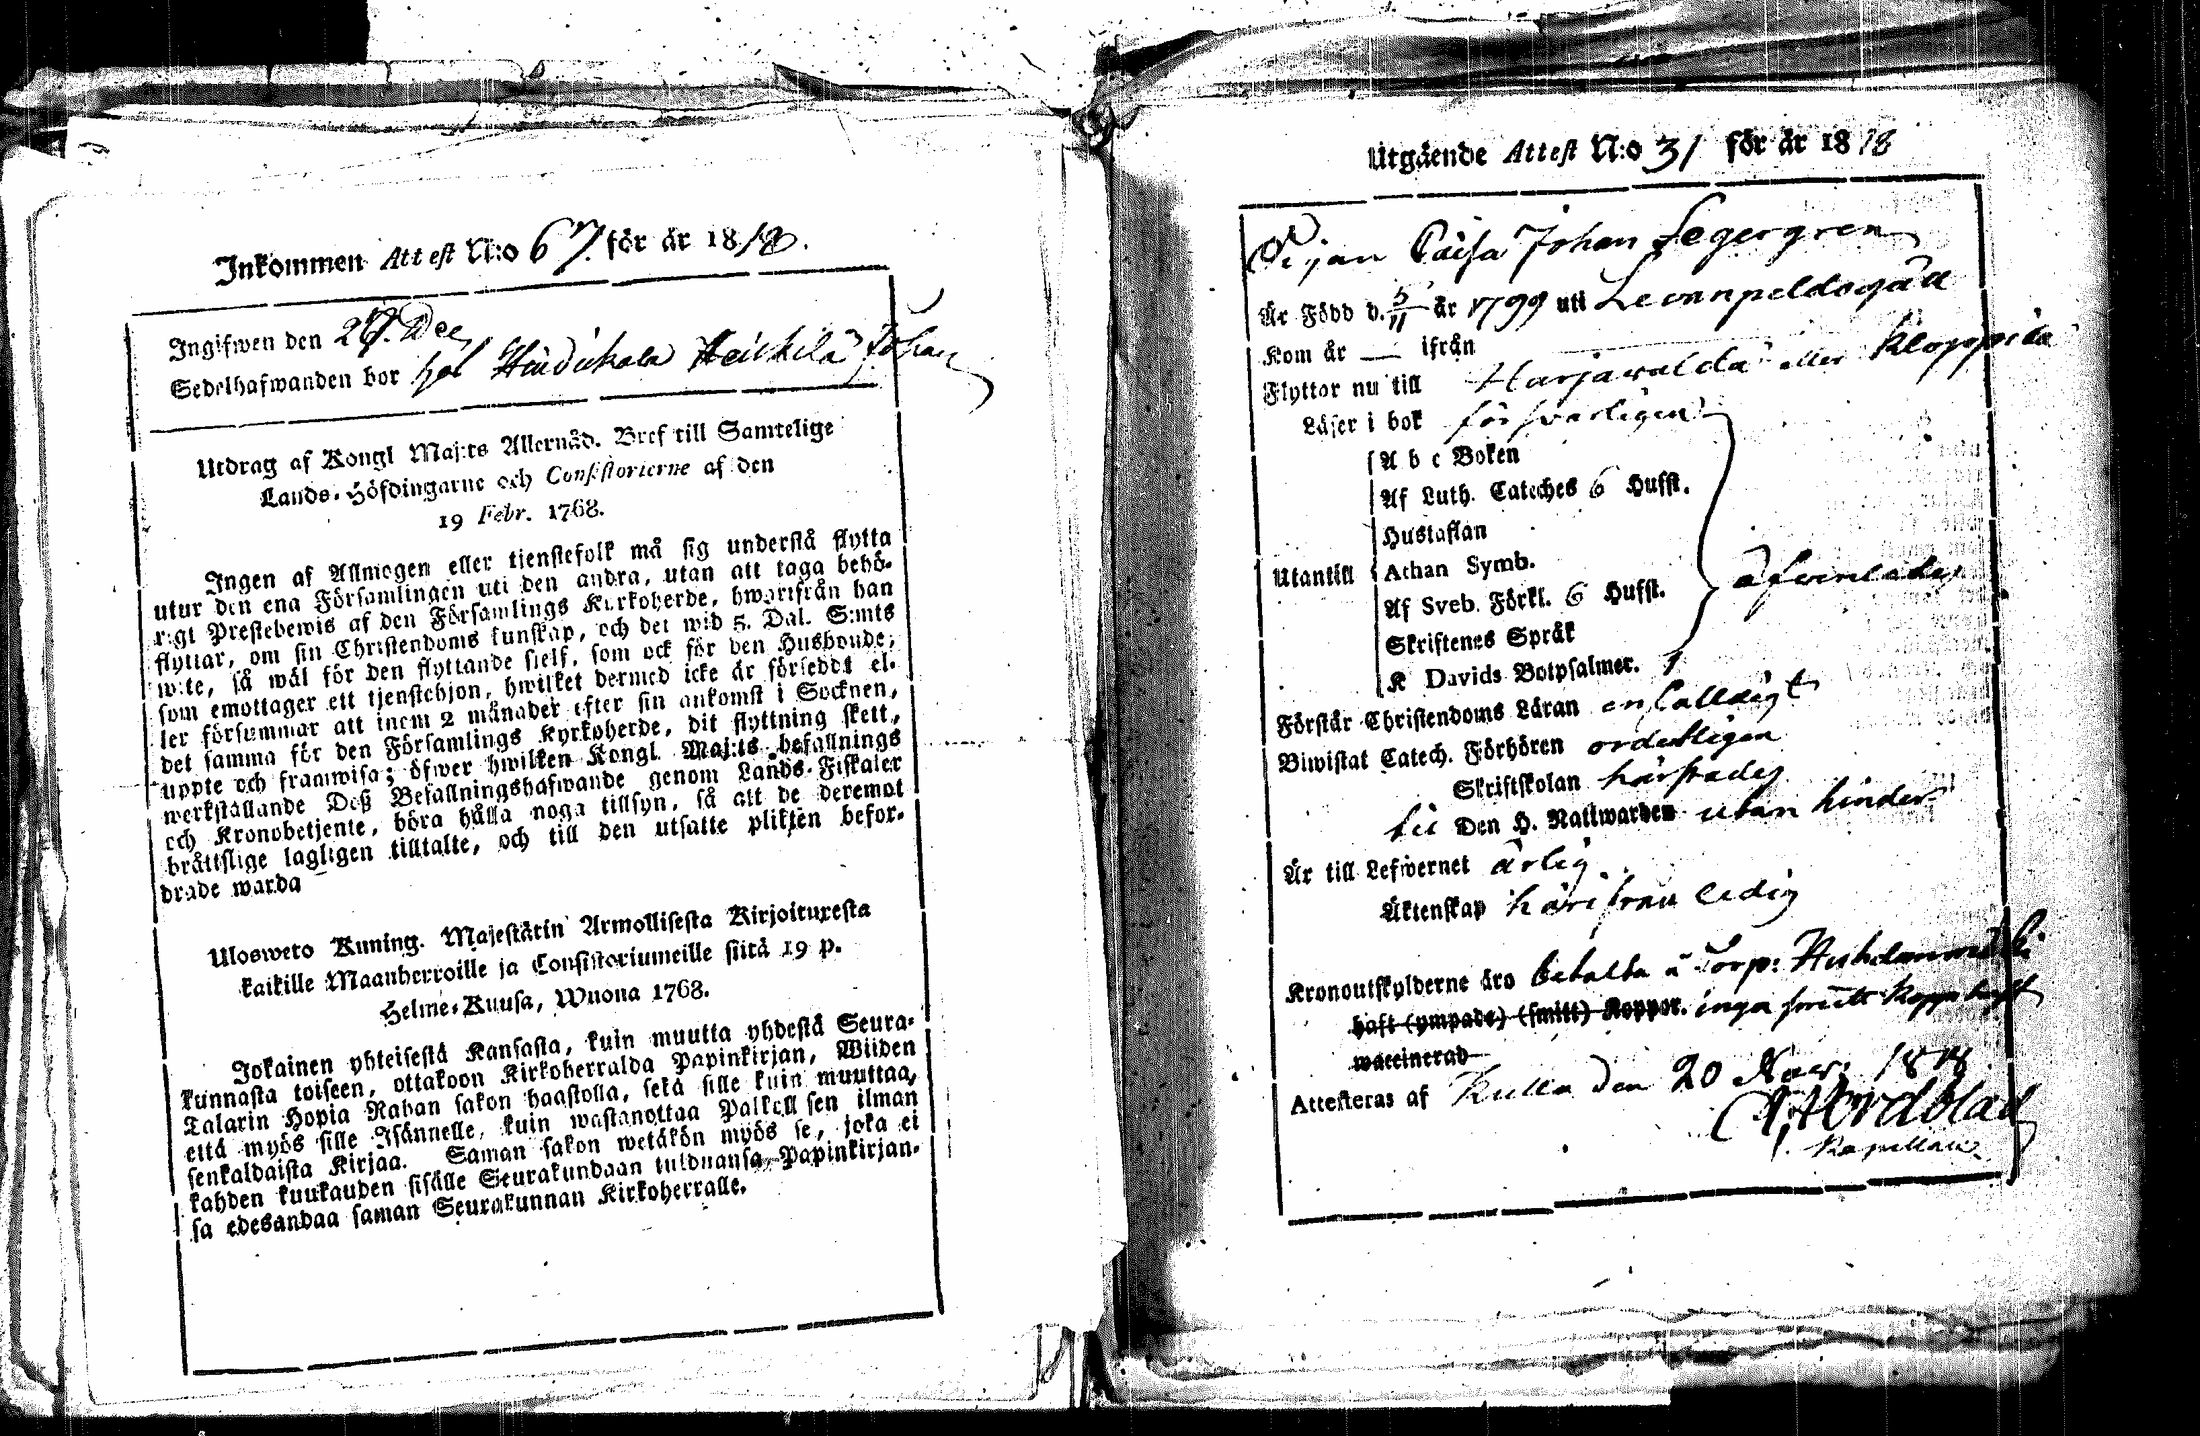 Inkommen Attest N:o 67. för år 1818.
Ingifwen den 27. Dec
Sedelhafwanden bor hos Heikilä Johan
Utdrag af Kongl Maj:ts Allernåd. Bref till Samtelige
Lands-Höfdingarne och Consistorierne af den
19 Febr. 1768.
Ingen af Allmogen eller tienstefolk må sig understå flytta
utur den ena Församlingen uti den andra, utan att taga behö-
rigt Prestebewis af den Församlings Kyrkoherde, hwarifrån han
flyttar, om sin Christendoms kunskap, och det wid 5. Dal. S:mts
wite, så wäl för den flyttande sielf, som ock för den Husbonde,
som emottager ett tjenstehjon, hwilket dermed icke är försedt el-
ler försummar att inom 2 månader efter sin ankomst i Socknen,
det samma för den Församlings Kyrkoherde, dit flyttning skett,
uppte och framwisa; öfwer hwilken Kongl. Maj:ts befallnings
werkställande Deß Befallningshafwande genom Lands-Fiskaler
och Kronobetjente, böra hålla noga tillsyn, så att de deremot
bråttslige lagligen tilltalte, och till den utsatte plikten befor-
drade warda
Ulosweto Kuning. Majestätin Armollisesta Kirjoituxesta
kaikille Maanherroille ja Consistoriumeille siitä 19 p.
Helme-Kuusa, Wuona 1768.
Jokainen yhteisestä Kansasta, kuin muutta yhdestä Seura-
kunnasta toiseen, ottakoon Kirkoherralda Papinkirjan, Wiiden
Talarin Hopia Rahan sakon haastolla, sekä sille kuin muuttaa,
että myös sille Isännelle, kuin wastanottaa Palkollisen ilman
senkaldaista Kirjaa. Saman sakon wetäkön myös se, joka ei
kahden kuukauden sisälle Seurakundaan tulduansa Papinkirjan-
sa edesandaa saman Seurakunnan Kirkoherralle.
Utgående Attest N:o 31 för år 1818
Pijan Caisa Johan Segergren
Är Född d. 5/11 år 1799 uti Levanpeldogård
Kom år — ifrån
Flyttar nu till Harjavalda eller Kloppila
Läser i bok försvarligen
A b c Boken
Af Luth. Cateches 6 Hufst.
Hustaflan
Utantill Athan Symb.
Af Sveb. Förkl. 6 Hufst. äfvenledes
Skriftenes Språk
K Davids Botpsalmer. 1
Förstår Christendoms Läran enfalldigt
Biwistat Catech. Förhören ordentligen
Skriftskolan härstädes
till Den H. Nattwarden utan hinder
Är till Lefwernet ärlig
Äktenskap härifrån ledig
Kronoutskylderne äro betalta å Torp:
haft (ympade) (smitt) Koppor. inga haft
waccinerad
Attesteras af Kulla den 20 Nov: 1818
Nordblad
Kapellan